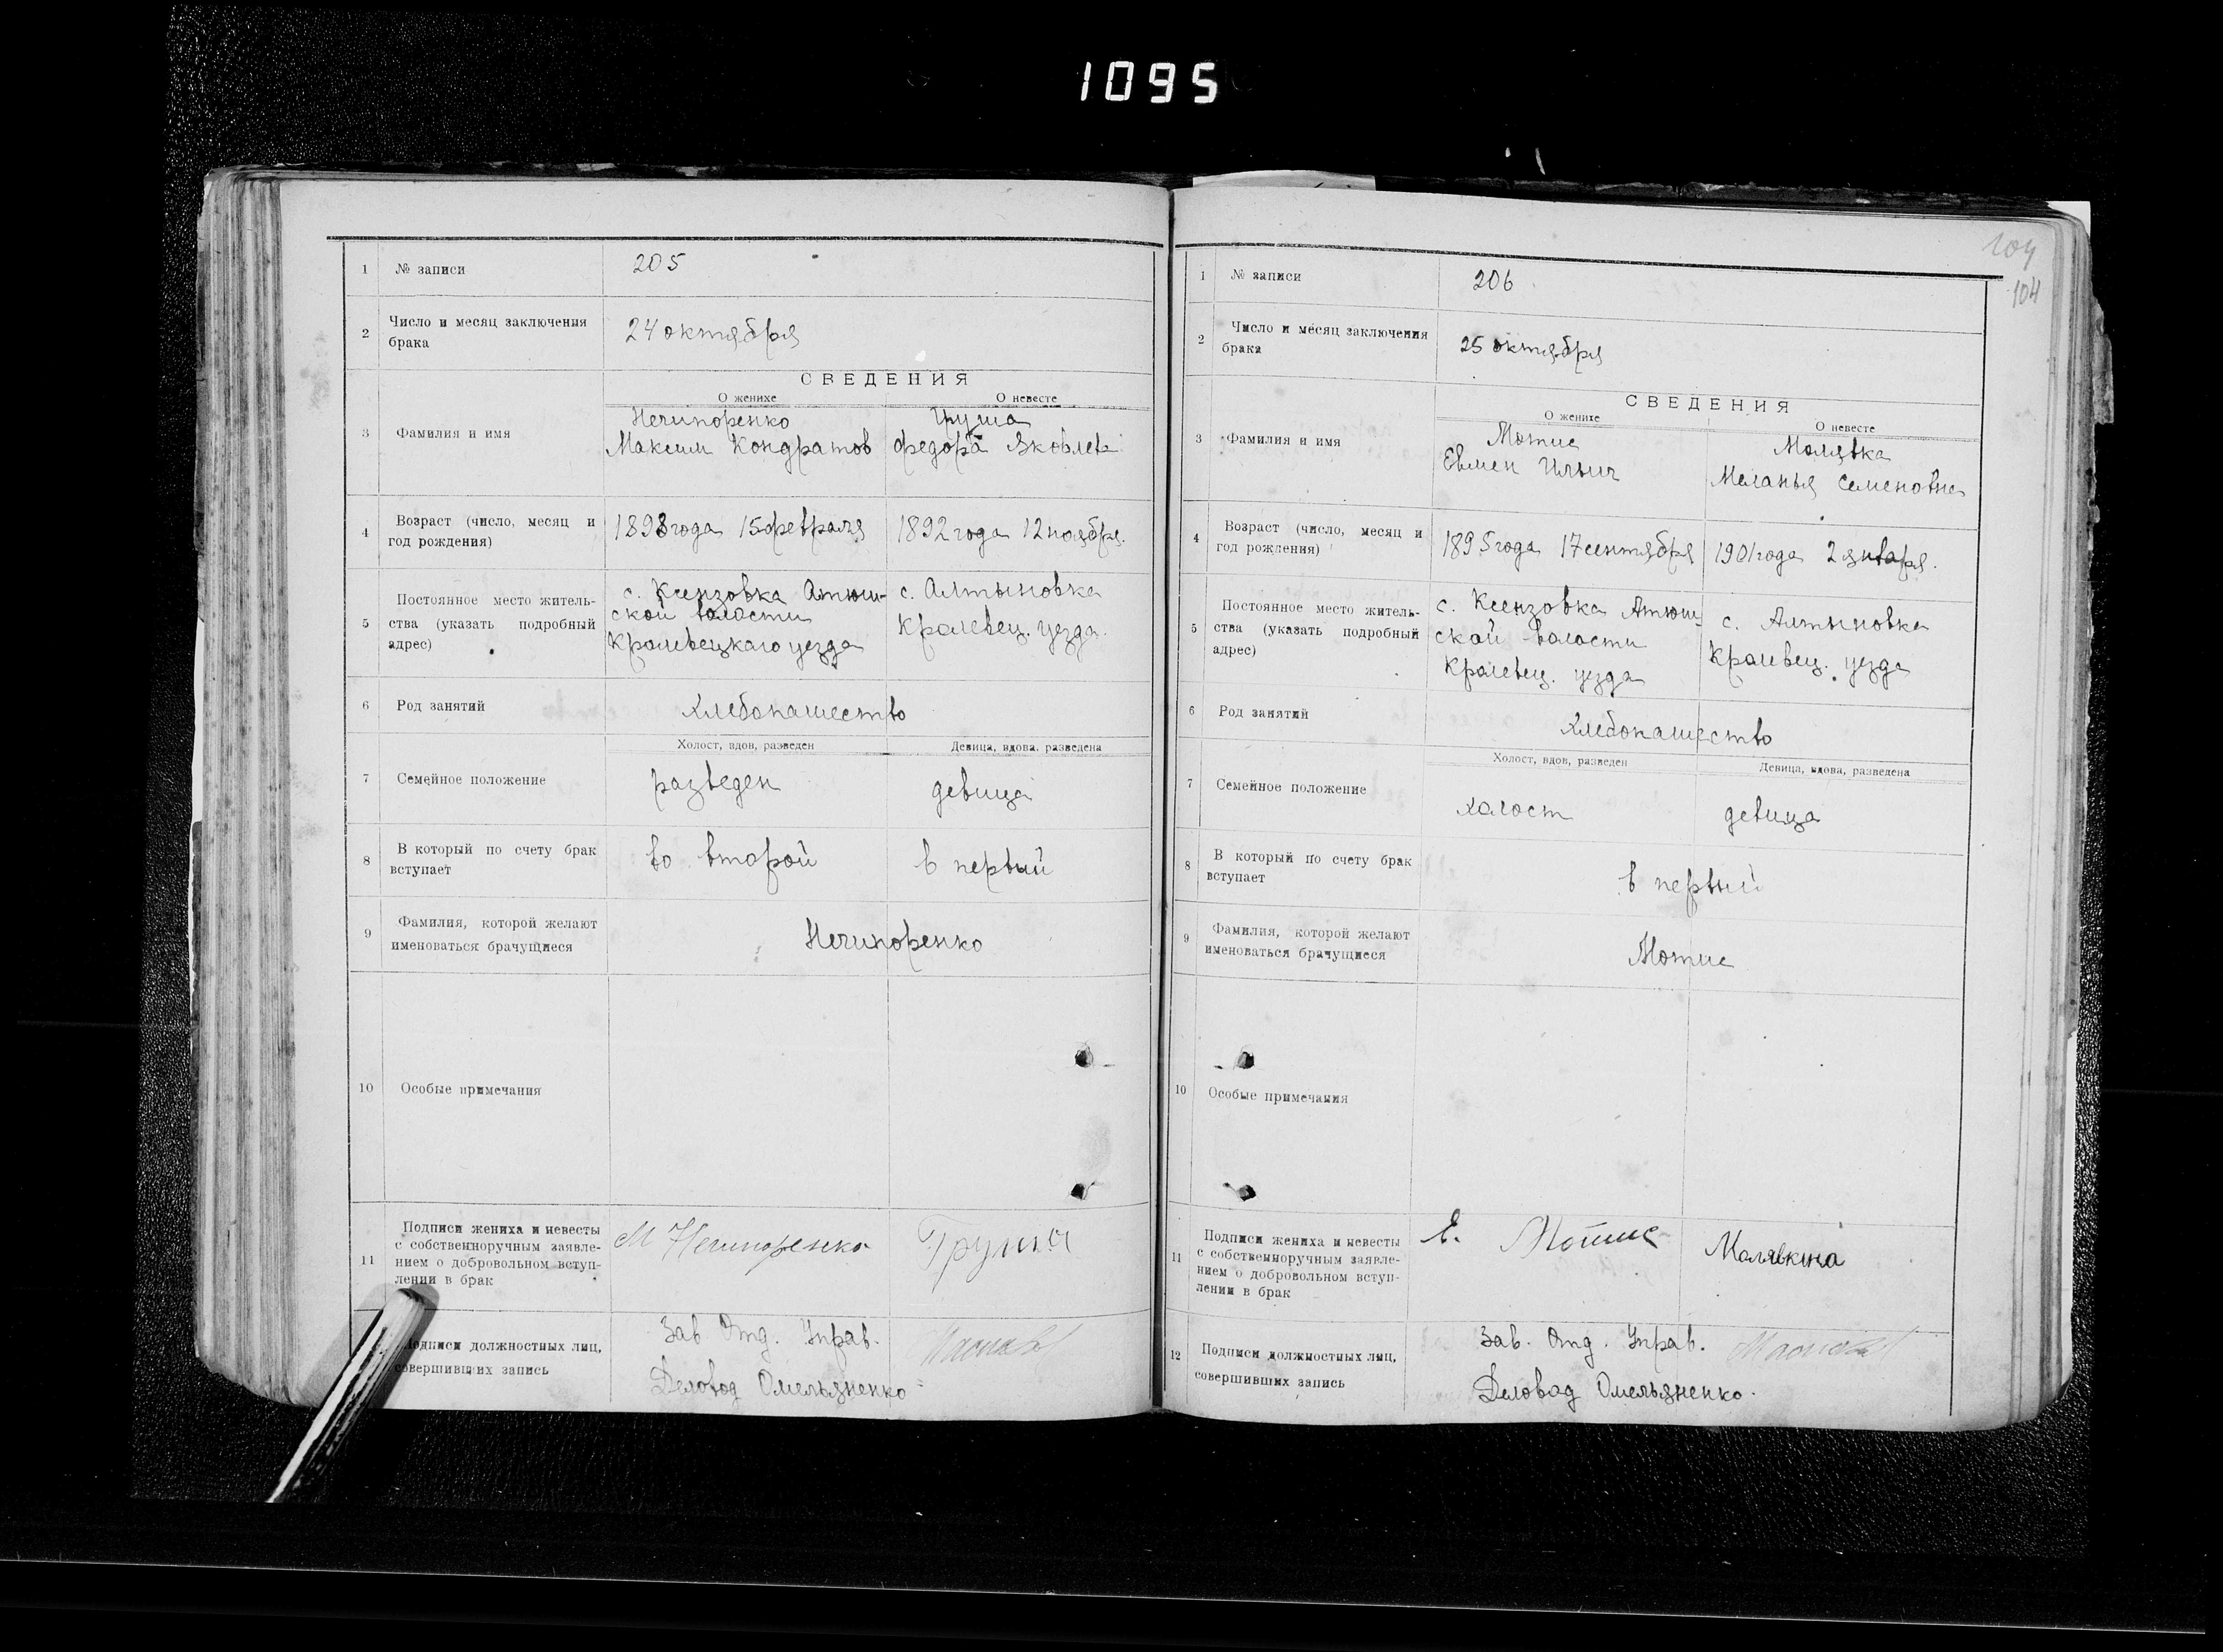 1095
1 № записи 205
2 Число и месяц заключения
брака
24 октября
СВЕДЕНИЯ
О женихе О невесте
3 Фамилия и имя
Нечипоренко Груша
Максим Кондратов Федора Яковлев
4 Возраст (число, месяц и
год рождения)
1898 года 15 февраля 1892 года 12 ноябр.
5 Постоянное место житель-
ства (указать подробный
адрес)
с. Ксензовка Атюш-
ской воласти
Кролевецкаго уезда
с. Алтыновка
Кролевец. уезда.
6 Род занятий Хлебопашество
Холост, вдов, разведен Девица, вдова, разведена
7 Семейное положение разведен девица
8 В который по счету брак
вступает
во второй в первый
9 Фамилия, которой желают
именоваться брачущиеся
Нечипоренко
10 Особые примечания
11 Подписи жениха и невесты
с собственноручным заявле-
нием о добровольном вступ-
лении в брак
М Нечипоренко Груша
Подписи должностных лиц,
совершивших запись
Зав Отд. Управ.
Деловод Омельяненко
104
104
1 № записи 206
2 Число и месяц заключения
брака
25 октября
СВЕДЕНИЯ
О женихе О невесте
3 Фамилия и имя
Мотие Малявка
Евмен Ильич Меланья Семеновна
4 Возраст (число, месяц и
год рождения)
1895 года 17 сентября 1901 года 2 января.
5 Постоянное место житель-
ства (указать подробный
адрес)
с. Ксензовка Атюш-
ской воласти
Кролевец. уезда
с. Алтыновка
Кролевец. уезда
6 Род занятий Хлебопашество
Холост, вдов, разведен Девица, вдова, разведена
7 Семейное положение халост девица
8 В который по счету брак
вступает
в первый
9 Фамилия, которой желают
именоваться брачущиеся
Мотие
10 Особые примечания
11 Подписи жениха и невесты
с собственноручным заявле-
нием о добровольном вступ-
лении в брак
Е. Мотие Малявкина
12 Подписи должностных лиц,
совершивших запись
Зав. Отд. Управ.
Деловад Омельяненко.